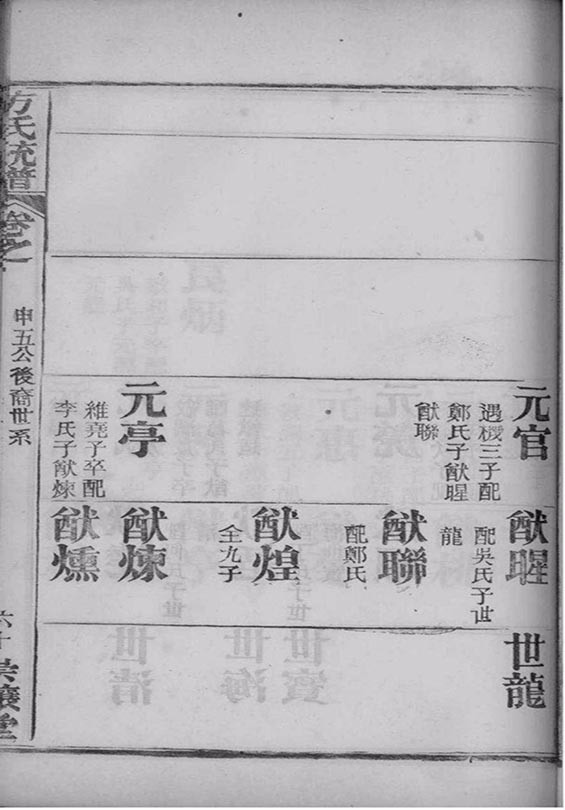 元官
遇機三子配
鄭氏子猷睲
猷聯
元亭
維堯子卒配
李氏子猷煉
猷睲
配吳氏子世
龍
猷聯
配鄭氏
猷煌
全九子
猷煉
猷燻
世龍
方氏統譜
卷之
申五公後裔世系
六十
讓堂